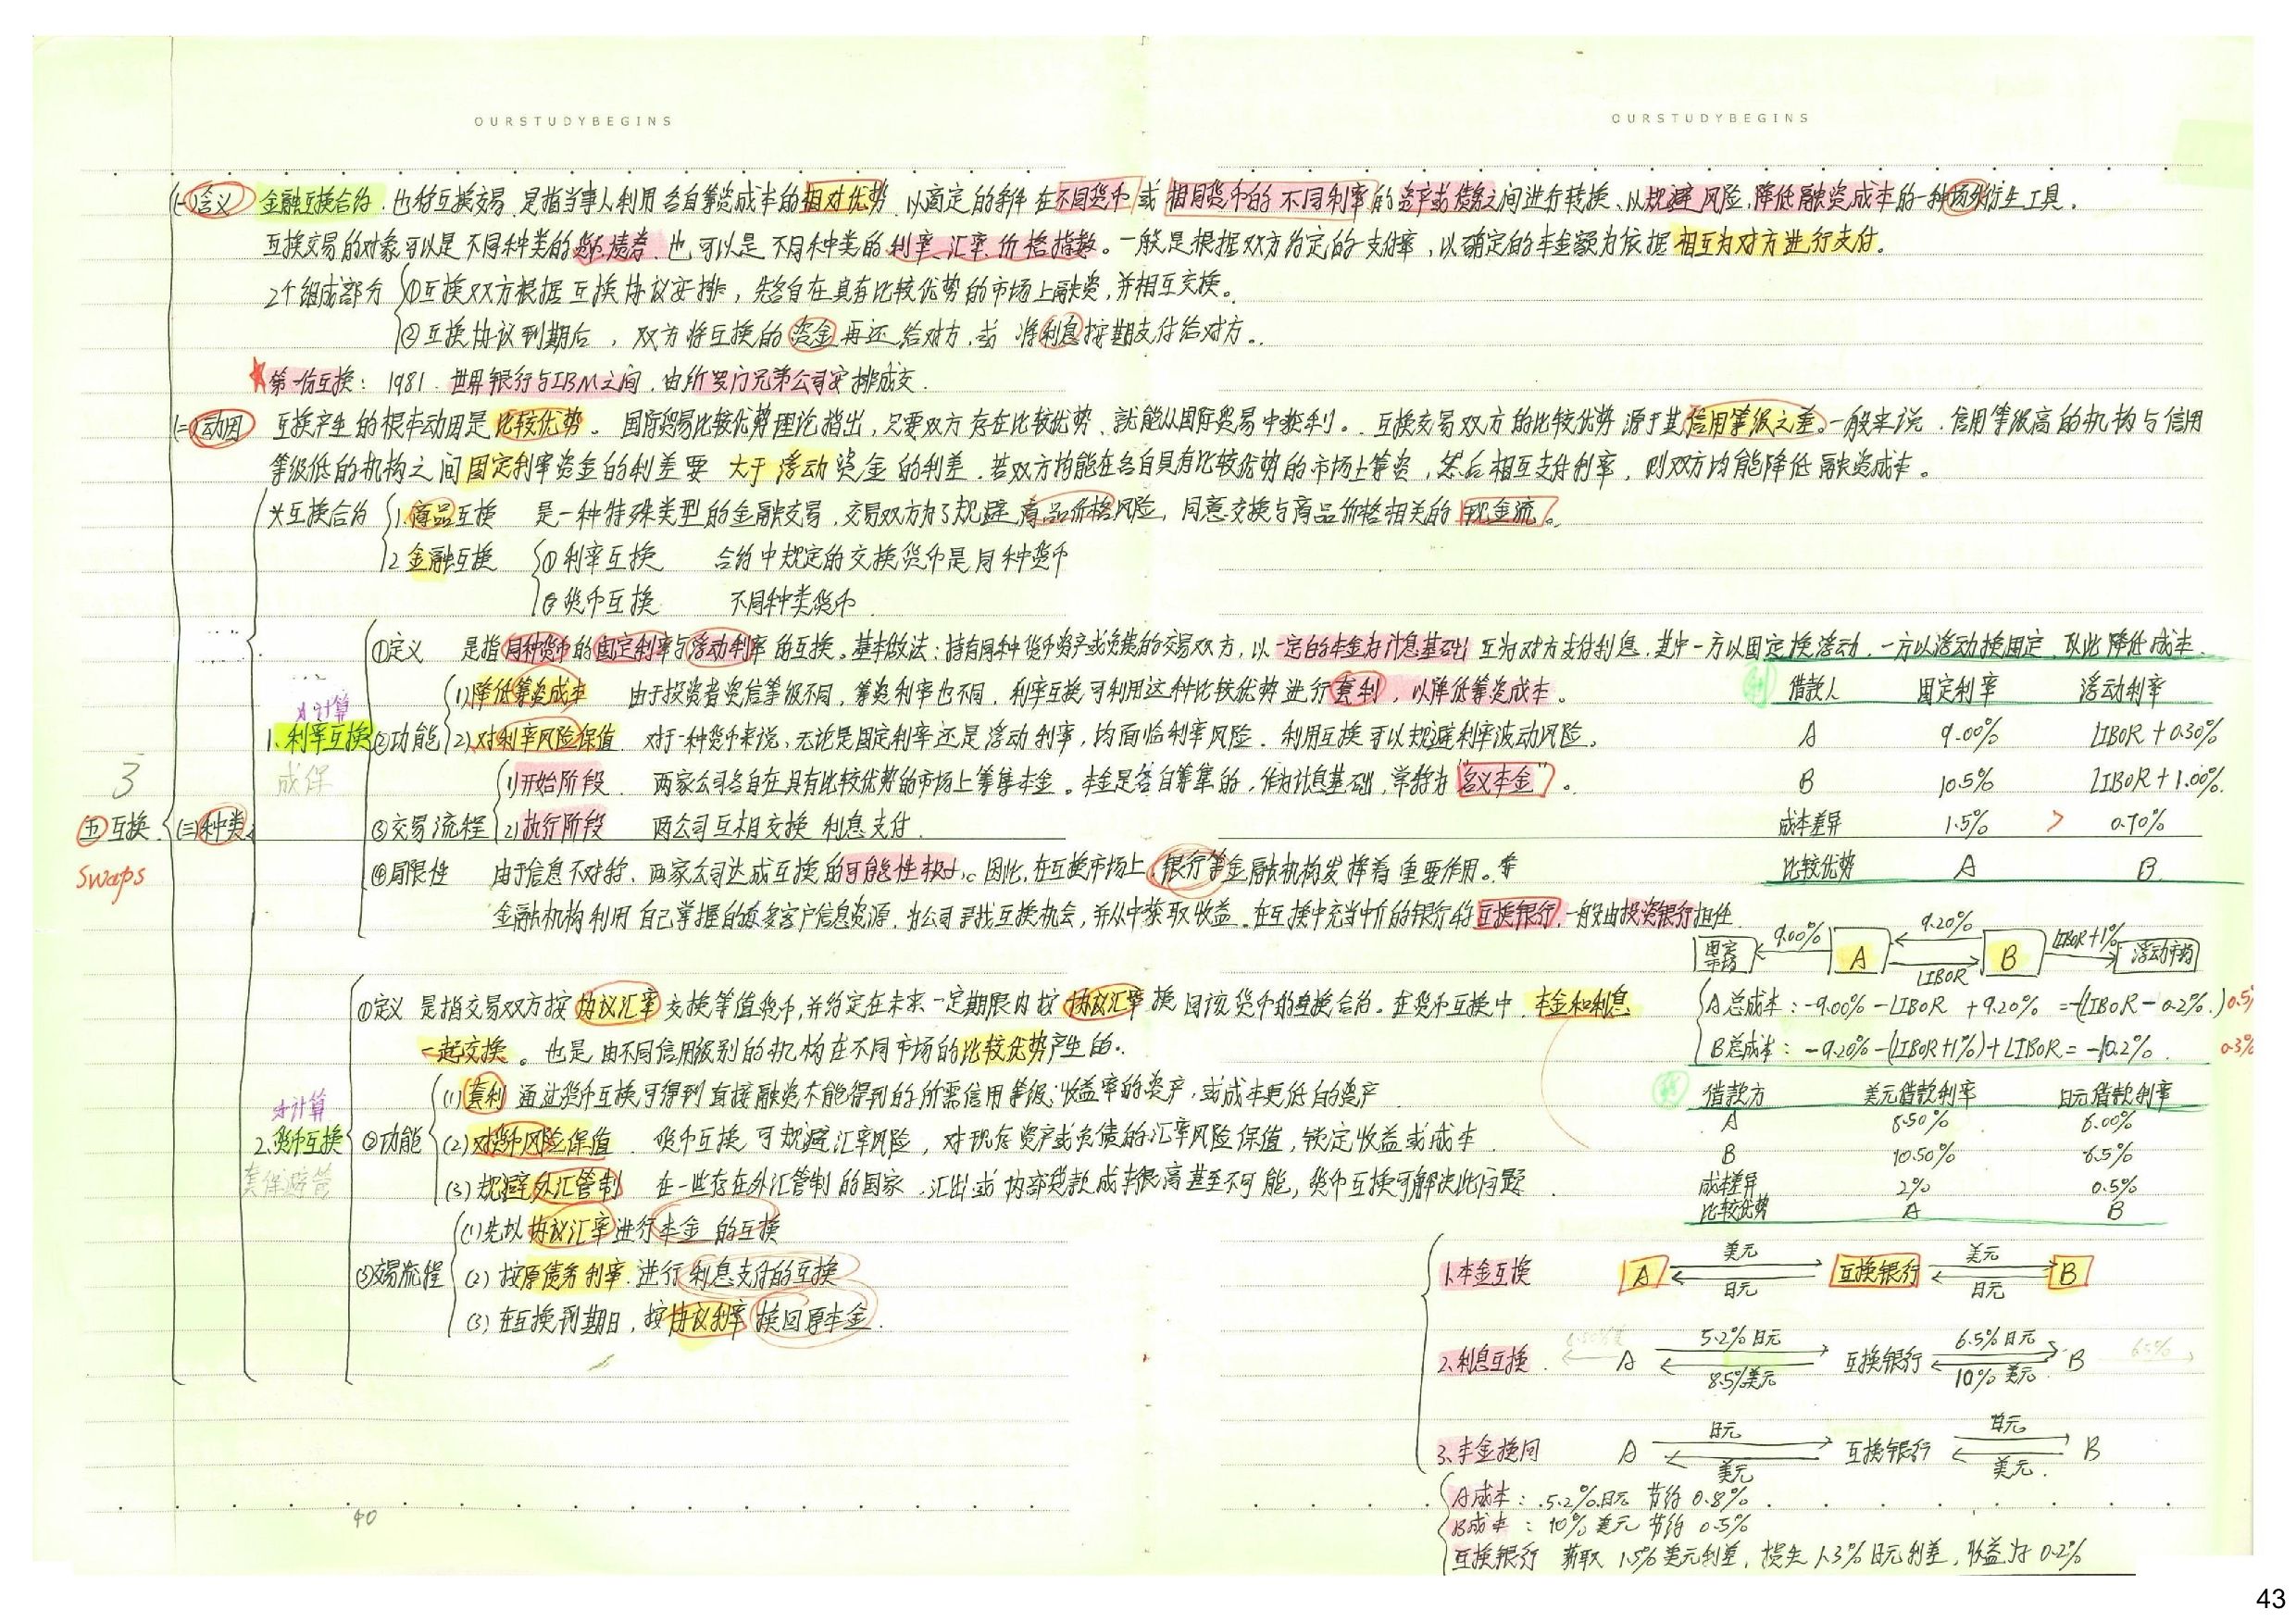 OURSTUDYBEGINS
OURSTUDYBEGINS
(一)含义 金融互换合约,也称互换交易,是指当事人利用各自筹资成本的相对优势,以商定的条件在不同货币或相同货币的不同利率的资产或债务之间进行转换、以规避风险,降低融资成本的一种场外衍生工具。
互换交易的对象可以是不同种类的货币、债券,也可以是不同种类的利率、汇率、价格指数。一般是根据双方约定的支付率,以确定的本金额为依据相互为对方进行支付。
2个组成部分 ①互换双方根据互换协议安排,先各自在具有比较优势的市场上融资,并相互交换。
②互换协议到期后,双方将互换的资金再还给对方,或将利息按期支付给对方。
★第一份互换:1981.世界银行与IBM之间,由所罗门兄弟公司安排成交.
(二)动因 互换产生的根本动因是比较优势。国际贸易比较优势理论指出,只要双方存在比较优势、就能从国际贸易中获利。互换交易双方的比较优势源于其信用等级之差。一般来说,信用等级高的机构与信用
等级低的机构之间固定利率资金的利差要 大于 浮动资金的利差.若双方均能在各自具有比较优势的市场上筹资,然后相互支付利率,则双方均能降低融资成本。
互换合约 1.商品互换 是一种特殊类型的金融交易,交易双方为了规避商品价格风险,同意交换与商品价格相关的现金流。
2.金融互换 ①利率互换 合约中规定的交换货币是同种货币
②货币互换 不同种类货币
3
(五)互换
Swaps
(三)种类
计算
1.利率互换
成保
①定义 是指同种货币的固定利率与浮动利率的互换。基本做法:持有同种货币资产或负债的交易双方,以一定的本金为计息基础互为对方支付利息,其中一方以固定换浮动,一方以浮动换固定,以此降低成本.
②功能 (1)降低筹资成本 由于投资者资信等级不同,筹资利率也不同,利率互换可利用这种比较优势进行套利,以降低筹资成本。
(2)对利率风险保值 对于一种货币来说,无论是固定利率还是浮动利率,均面临利率风险.利用互换可以规避利率波动风险。
③交易流程 (1)开始阶段 两家公司各自在具有比较优势的市场上筹集本金。本金是各自筹集的,作为计息基础,常称为“名义本金”。
(2)执行阶段 两公司互相交换利息支付.
④局限性 由于信息不对称,两家公司达成互换的可能性极小。因此,在互换市场上,银行等金融机构发挥着重要作用。
金融机构利用自己掌握的众多客户信息资源,为公司寻找互换机会,并从中获取收益.在互换中充当中介的银行称互换银行,一般由投资银行担任.
例 借款人 固定利率 浮动利率
A 9.00% LIBOR+0.30%
B 10.5% LIBOR+1.00%.
成本差异 1.5% > 0.70%
比较优势 A B
固定市场 9.00% A 9.20% LIBOR B LIBOR+1% 浮动市场
A总成本:-9.00%-LIBOR+9.20%=-(LIBOR-0.2%.) 0.5%
B总成本:-9.20%-(LIBOR+1%)+LIBOR=-10.2%. 0.3%
计算
2.货币互换
套保避管
①定义 是指交易双方按协议汇率交换等值货币,并约定在未来一定期限内按协议汇率换回该货币的互换合约。在货币互换中,本金和利息
一起交换。也是由不同信用级别的机构在不同市场的比较优势产生的.
②功能 (1)套利 通过货币互换可得到直接融资不能得到的所需信用等级、收益率的资产,或成本更低的资产
(2)对货币风险保值. 货币互换可规避汇率风险,对现存资产或负债的汇率风险保值,锁定收益或成本.
(3)规避外汇管制 在一些存在外汇管制的国家,汇出或内部贷款成本很高甚至不可能,货币互换可解决此问题.
③交易流程 (1)先以协议汇率进行本金的互换
(2)按原债务利率.进行利息支付的互换
(3)在互换到期日,按协议利率换回原本金.
借款方 美元借款利率 日元借款利率
A 8.50% 6.00%
B 10.50% 6.5%
成本差异 2% 0.5%
比较优势 A B
1.本金互换 A 美元 日元 互换银行 美元 日元 B
2.利息互换. A 5.2%日元 8.5%美元 互换银行 6.5%日元 10%美元 B 6.5%
3.本金换回 A 日元 美元 互换银行 日元 美元 B
A成本:5.2%日元 节约0.8%
B成本:10%美元 节约0.5%
互换银行 获取1.5%美元利差,损失1.3%日元利差,收益为0.2%
40
43